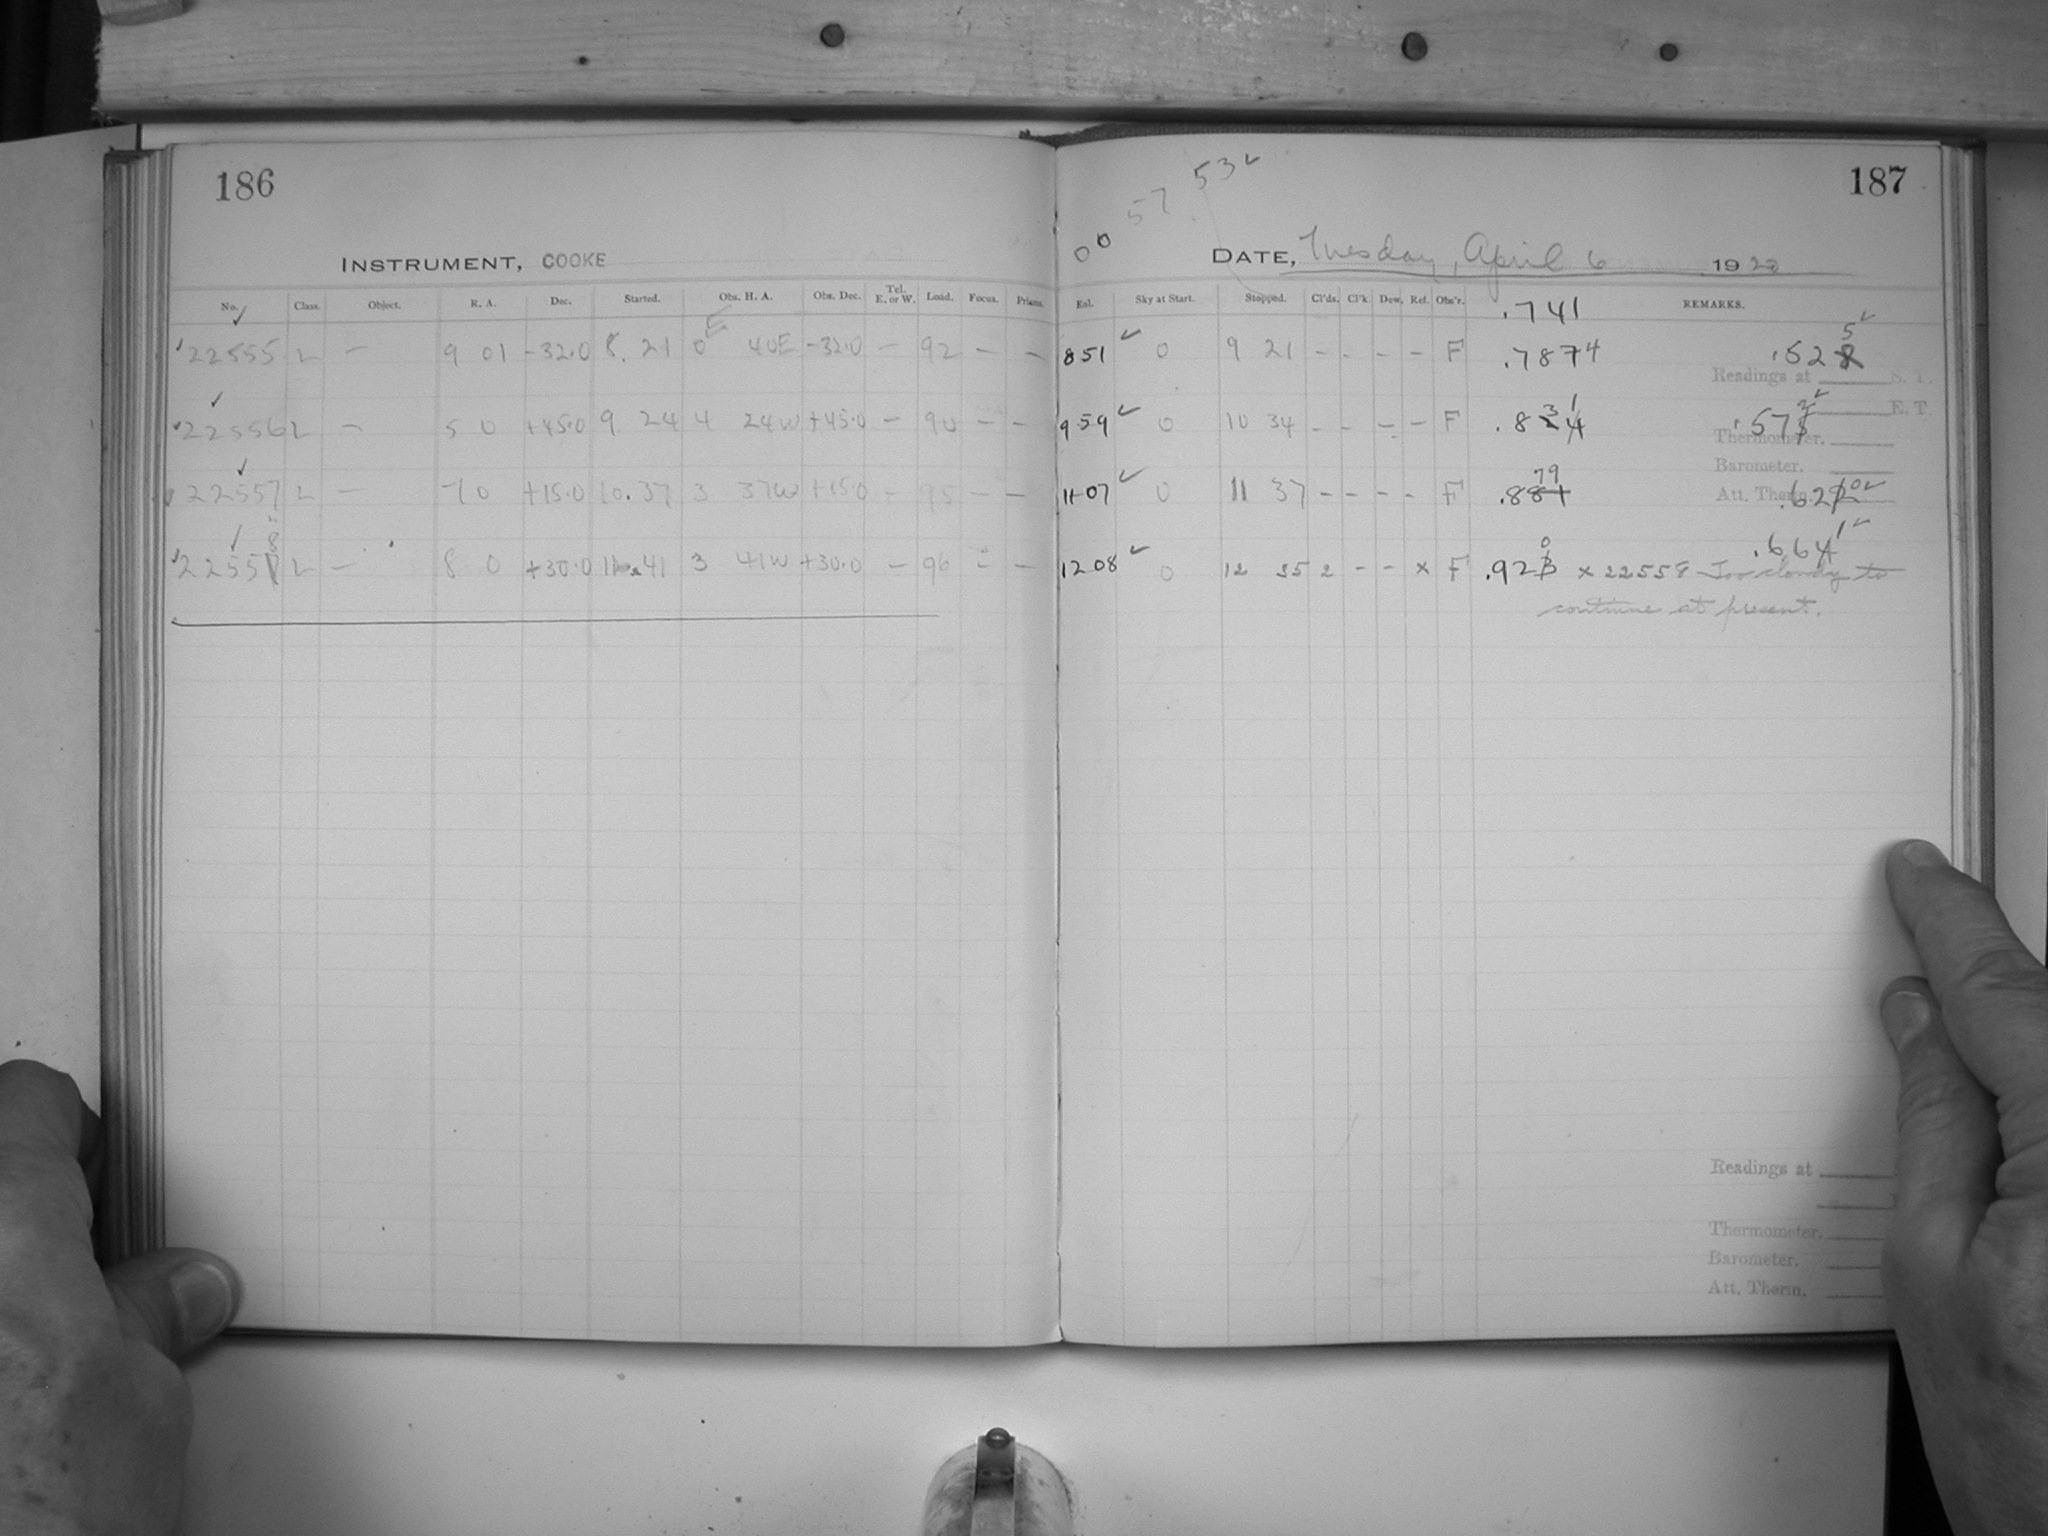 186
INSTRUMENT, COOKE
No. Class. Object. R. A. Dec. Started. Obs. H. A. Obs. Dec. Tel. E. or W. Load. Focus. Prisms.
22555 L – 9 01 -32.0 8. 21 0 40E -32.0 – 92 – –
22556 L – 5 0 +45.0 9 24 4 24W +45.0 – 90 – –
22557 L – 7 0 +15.0 10.37 3 37W +15.0 – 95 – –
22558 L – 8 0 +30.0 11.41 3 41W +30.0 – 96 – –
00 57 53 ✓
187
DATE, Tuesday, April 6 1920
Exl. Sky at Start. Stopped. Cl'ds. Cl'k. Dew. Ref. Obs'r. REMARKS.
.741
851 ✓ 0 9 21 – – – – F .7874 .525 ✓
Readings at S. T.
E. T.
959 ✓ 0 10 34 – – – – F .831 .572 ✓
Thermometer.
Barometer.
1107 ✓ 0 11 37 – – – – F .879 .620 ✓
Att. Therm.
.661 ✓
1208 ✓ 0 12 35 2 – – × F .920 × 22558 Too cloudy to
continue at present.
Readings at
Thermometer.
Barometer.
Att. Therm.